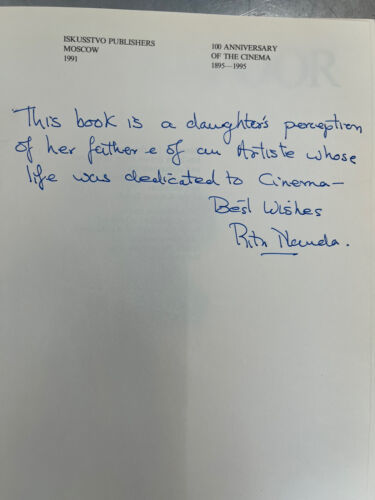 ISKUSSTVO PUBLISHERS
MOSCOW
1991
100 ANNIVERSARY
OF THE CINEMA
1895—1995
This book is a daughter's perception
of her father & of an Artiste whose
life was dedicated to Cinema —
Best Wishes
Ritu Nanda.